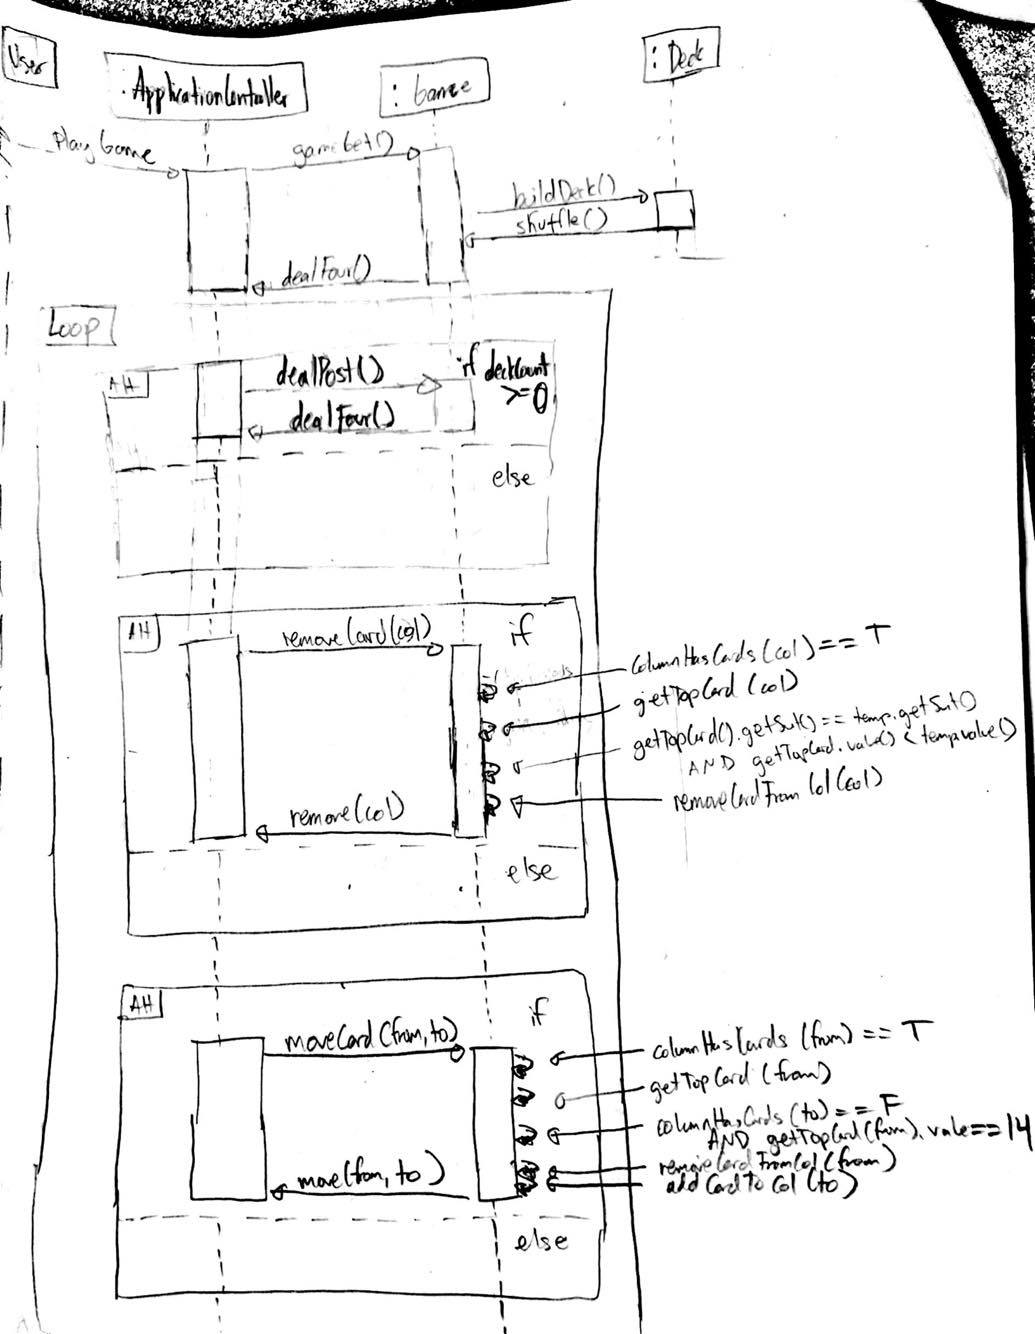 User
: ApplicationContoller
: Game
: Deck
Play Game
gameGet()
buildDeck()
shuffle()
dealFour()
Loop
Alt
dealPost()
if deckCount
>=0
dealFour()
else
Alt
removeCard(col)
if
columnHasCards(col) == T
getTopCard(col)
getTopCard().getSuit() == temp.getSuit()
AND getTopCard.value() < temp.value()
removeCardFromCol(col)
remove(col)
else
Alt
if
moveCard(from, to)
columnHasCards (from) == T
getTopCard (from)
columnHasCards (to) == F
AND getTopCard(from).value == 14
removeCardFromCol(from)
addCardToCol(to)
move(from, to)
else